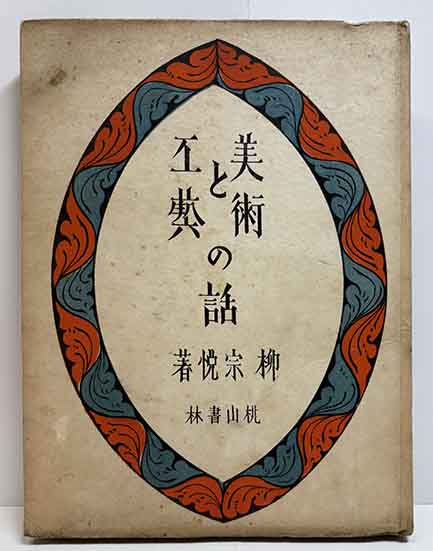 美術と工藝の話
柳宗悦著
桃山書林